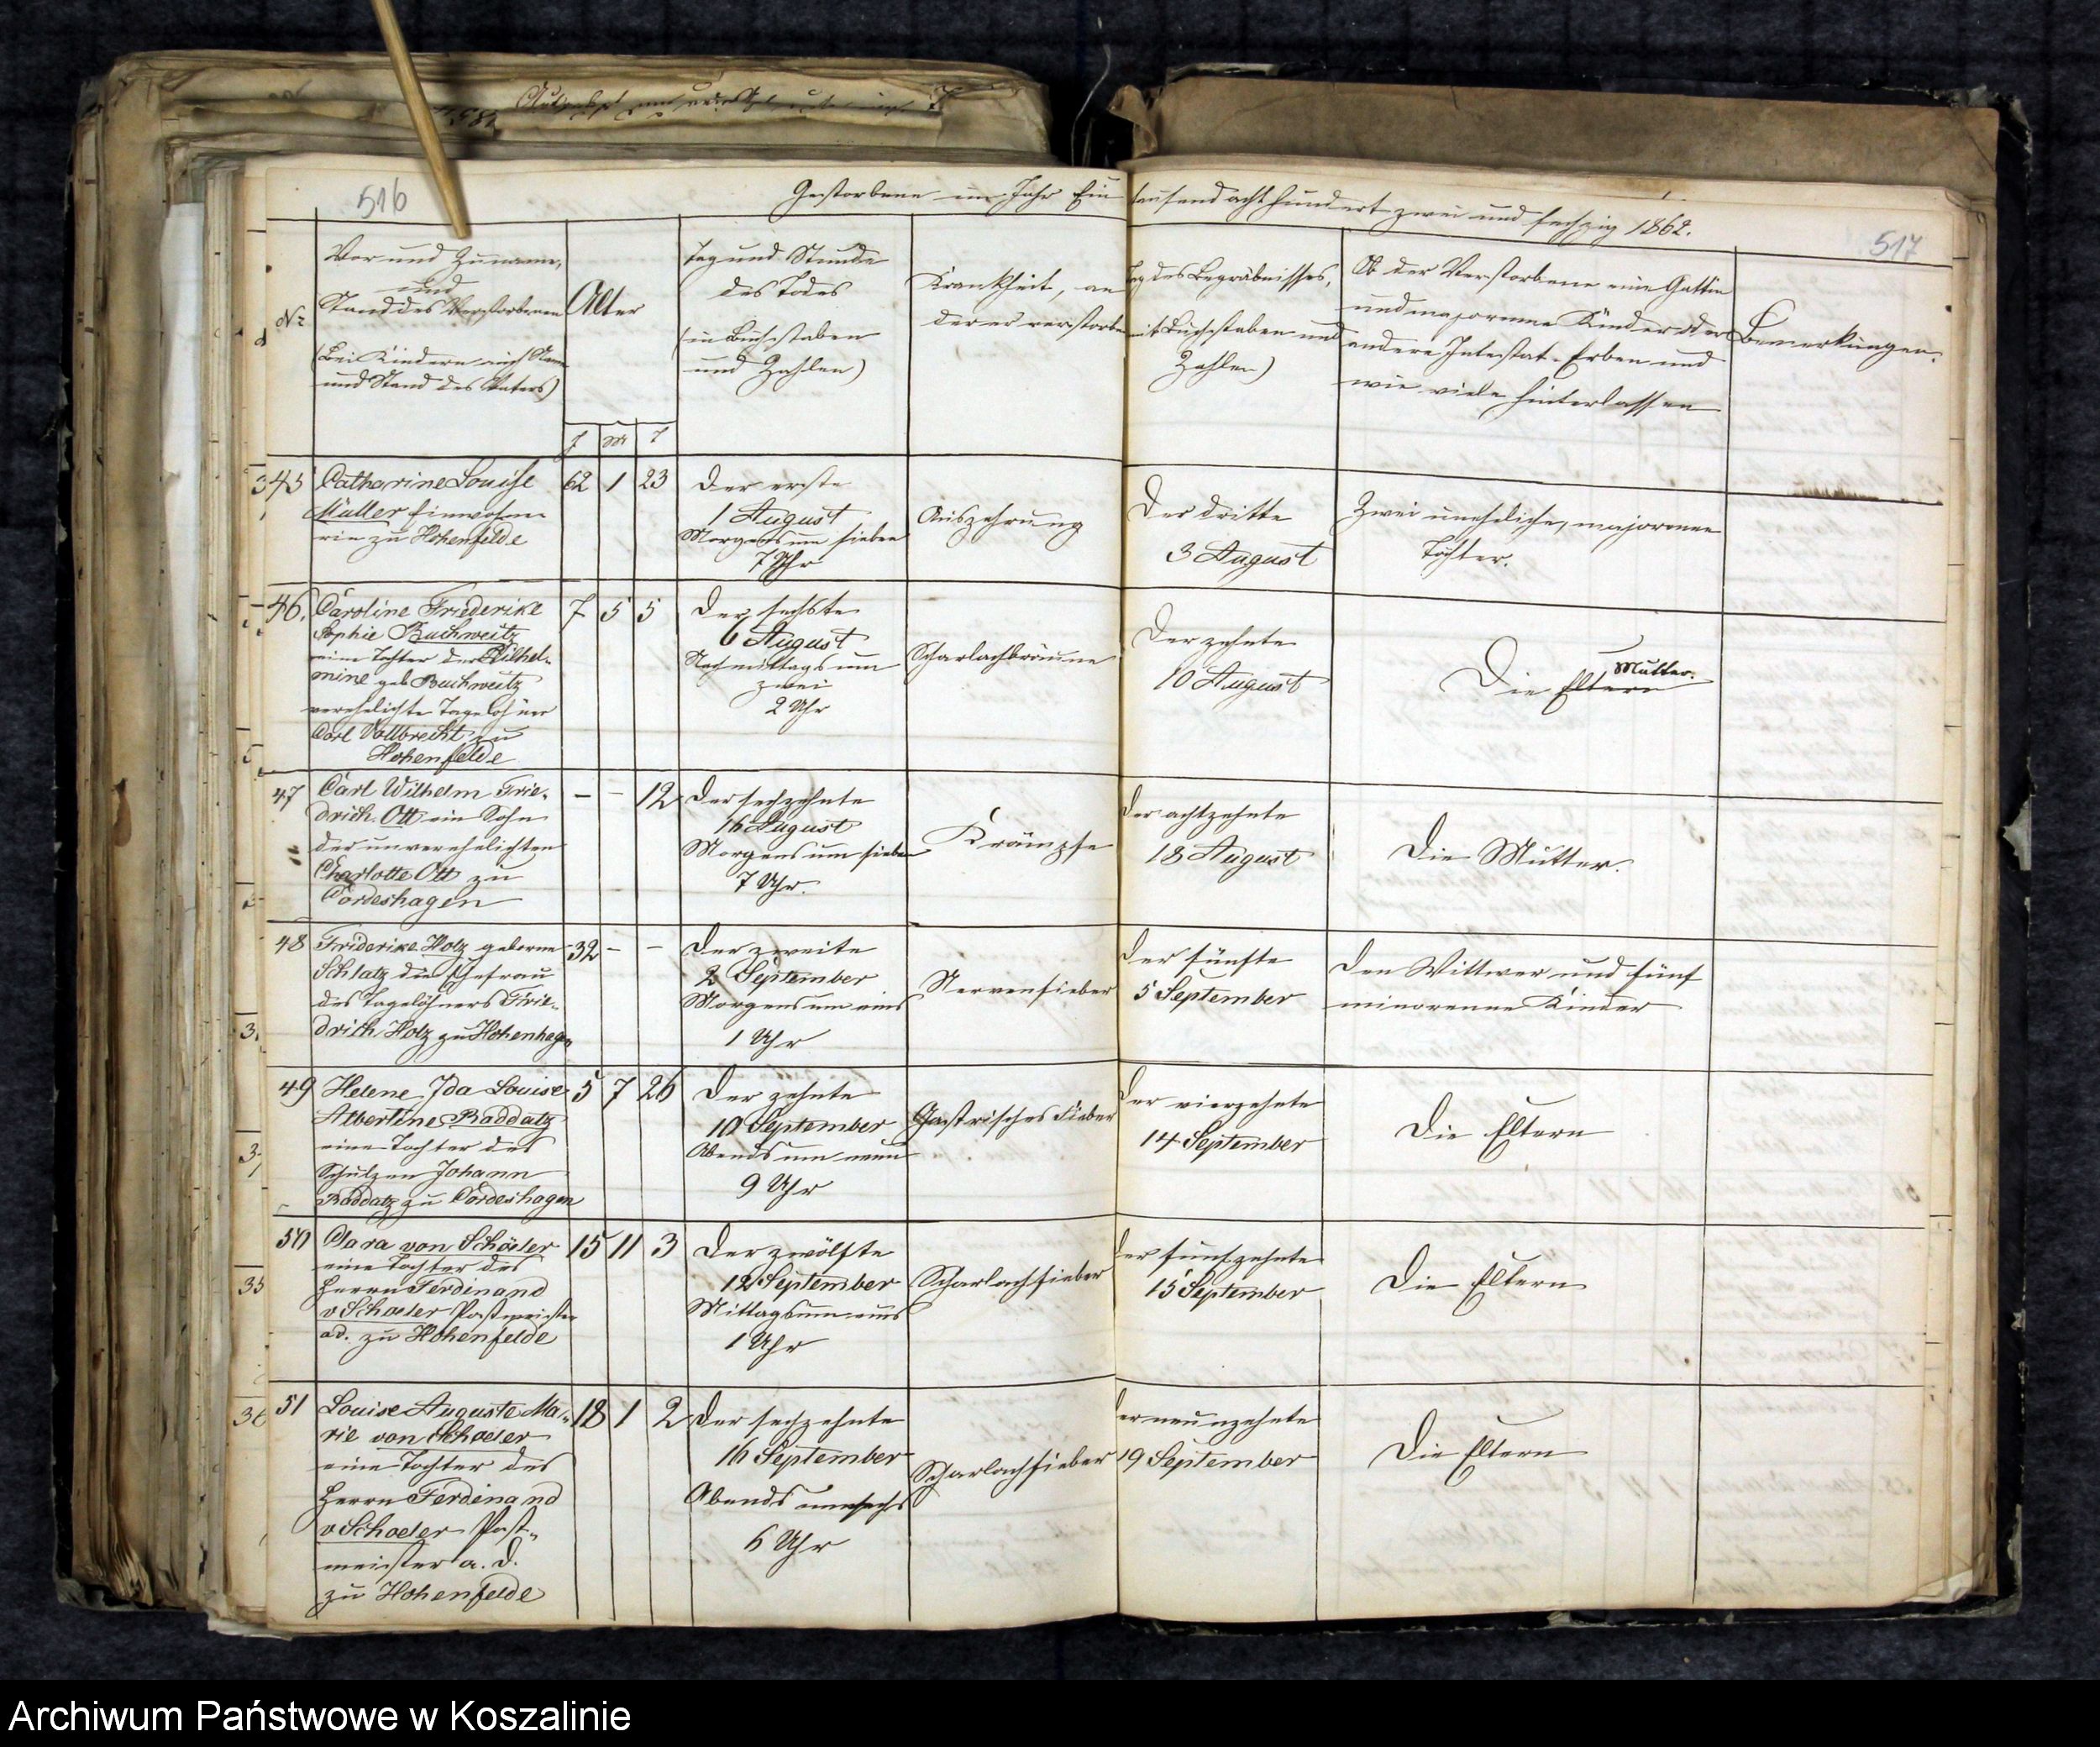 516
Gestorbene im Jahr Ein tausend acht hundert zwei und sechzig 1862.
517
No
Vor und Zuname,
und
Stand des Verstorbenen
(Bei Kindern auch Name
und Stand des Vaters)
Alter
J M T
Tag und Stunde
des Todes
(in Buchstaben
und Zahlen)
Krankheit, an
der er verstorben
Tag des Begräbnisses,
mit Buchstaben und
Zahlen)
Ob der Verstorbene eine Gattin
und majorenne Kinder oder
andere Intestat-Erben und
wie viele hinterlassen
Bemerkungen.
45
Catharine Louise
Müller Einwohne-
rin zu Hohenfelde
62 1 23
Der erste
1 August
Morgens um sieben
7 Uhr
Auszehrung
Der dritte
3 August
Zwei uneheliche, majorenne
Töchter.
46.
Caroline Friederike
Sophie Buchweitz
eine Tochter der Wilhel-
mine geb Buchweitz
verehelichte Tagelöhner
Carl Vollbrecht zu
Hohenfelde
7 5 5
Der sechste
6 August
Nachmittags um
zwei
2 Uhr
Scharlachbräune
Der zehnte
10 August
Mutter.
Die Eltern
47
Carl Wilhelm Frie-
drich Ott ein Sohn
der unverehelichten
Charlotte Ott zu
Cordeshagen
– – 12
Der sechzehnte
16 August
Morgens um sieben
7 Uhr.
Krämpfe
Der achtzehnte
18 August
Die Mutter.
48
Friderike Holz geborne
Schlatz die Ehefrau
des Tagelöhners Frie-
drich Holz zu Hohenhagen
32 – –
Der zweite
2 September
Morgens um eins
1 Uhr
Nervenfieber
Der fünfte
5 September
Den Wittwer und fünf
minorenne Kinder
49
Helene Ida Louise
Albertine Raddatz
eine Tochter des
Schulzen Johann
Raddatz zu Cordeshagen
5 7 26
Der zehnte
10 September
Abends um neun
9 Uhr
Gastrisches Fieber
Der vierzehnte
14 September
Die Eltern
50
Clara von Schöler
eine Tochter des
Herrn Ferdinand
v Schoeler Postmeister
a d. zu Hohenfelde
15 11 3
Der zwölfte
12 September
Mittags um eins
1 Uhr
Scharlachfieber
Der funfzehnte
15 September
Die Eltern
51
Louise Auguste Ma-
rie von Schoeler
eine Tochter des
Herrn Ferdinand
v Schoeler Post-
meister a. D.
zu Hohenfelde
18 1 2
Der sechzehnte
16 September
Abends um sechs
6 Uhr
Scharlachfieber
Der neunzehnte
19 September
Die Eltern
Archiwum Państwowe w Koszalinie